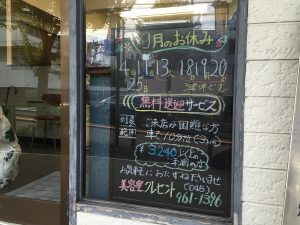 9月のお休み
4 11 13 18 19 20
25日
無料送迎サービス
対象 ご来店が困難な方
範囲 車で10分位(3km)
¥3240以上の
お気軽におたずね下さいませ
美容室 クレセント (045)
961-1396